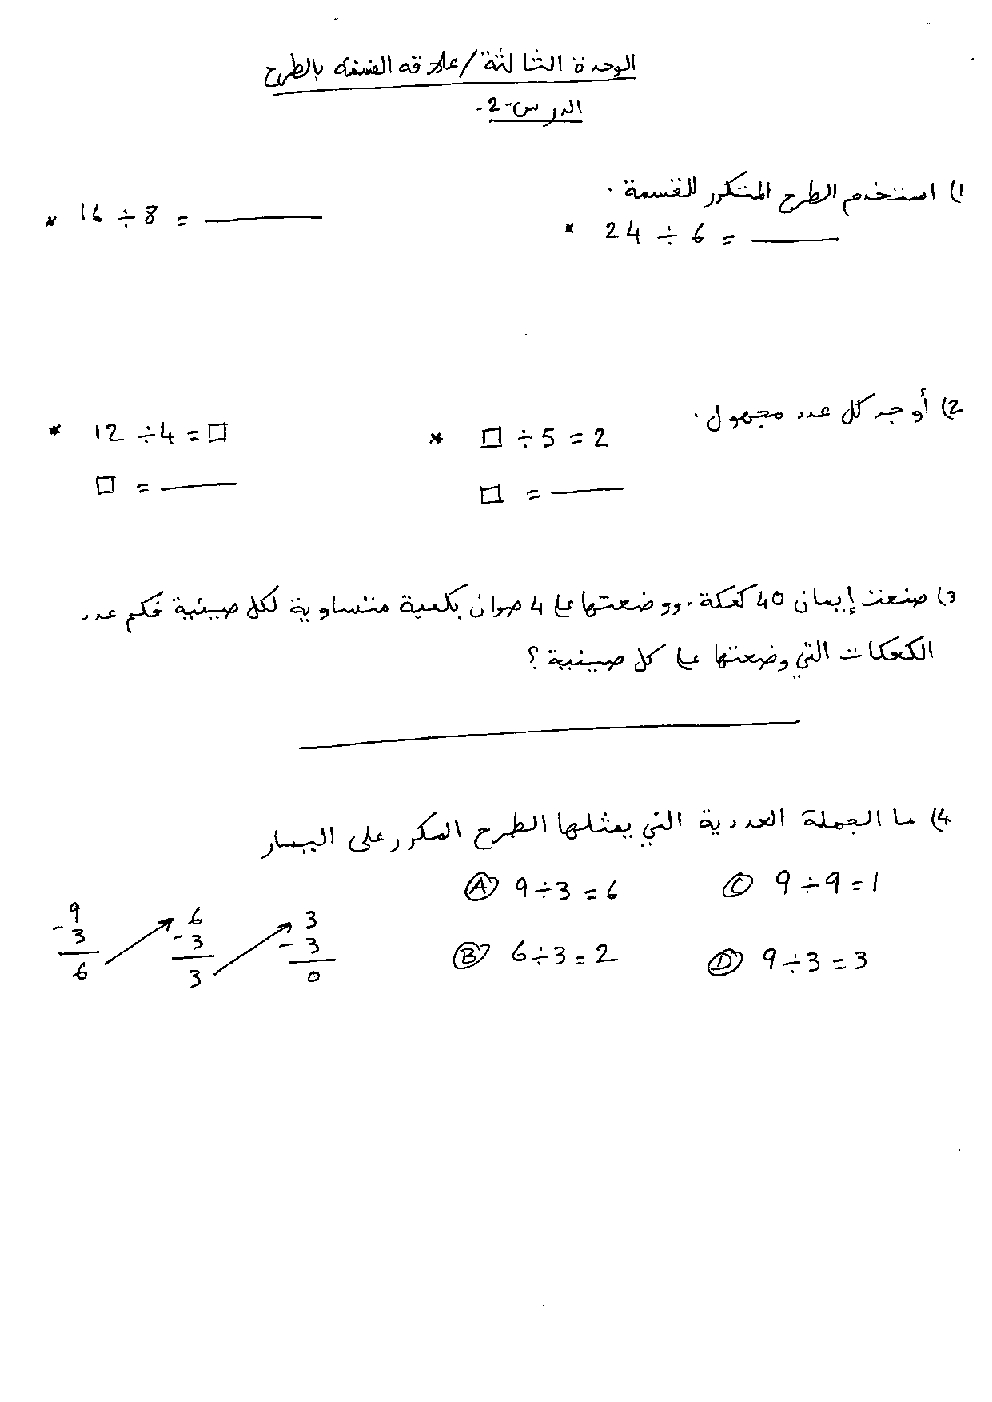 الوحدة الثالثة / علاقة القسمة بالطرح
الدرس -2-
1) استخدم الطرح المتكرر للقسمة .
* 24 ÷ 6 = ____
* 16 ÷ 8 = ____
2) أوجد كل عدد مجهول .
* □ ÷ 5 = 2
* 12 ÷ 4 = □
□ = ____
□ = ____
3) صنعت إيمان 40 كعكة . ووضعتها على 4 صوان بكمية متساوية لكل صينية فكم عدد
الكعكات التي وضعتها على كل صينية ؟
4) ما الجملة العددية التي يمثلها الطرح المكرر على اليسار
Ⓐ 9 ÷ 3 = 6
Ⓒ 9 ÷ 9 = 1
Ⓑ 6 ÷ 3 = 2
Ⓓ 9 ÷ 3 = 3
9 6 3
- 3 - 3 - 3
6 3 0